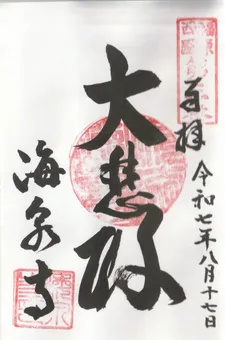 奉拝
令和七年八月十七日
大悲殿
海泉寺